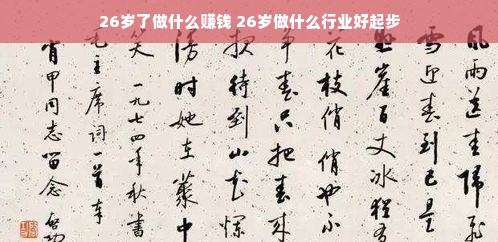 26岁了做什么赚钱 26岁做什么行业好起步
风雨送春归飞
雪迎春到已是
悬崖百丈冰犹有
花枝俏俏也不
争春只把春来
报待到山花烂
漫时她在丛中
笑 一九七四年秋书
毛主席词一首奉
甲同志留念 启功